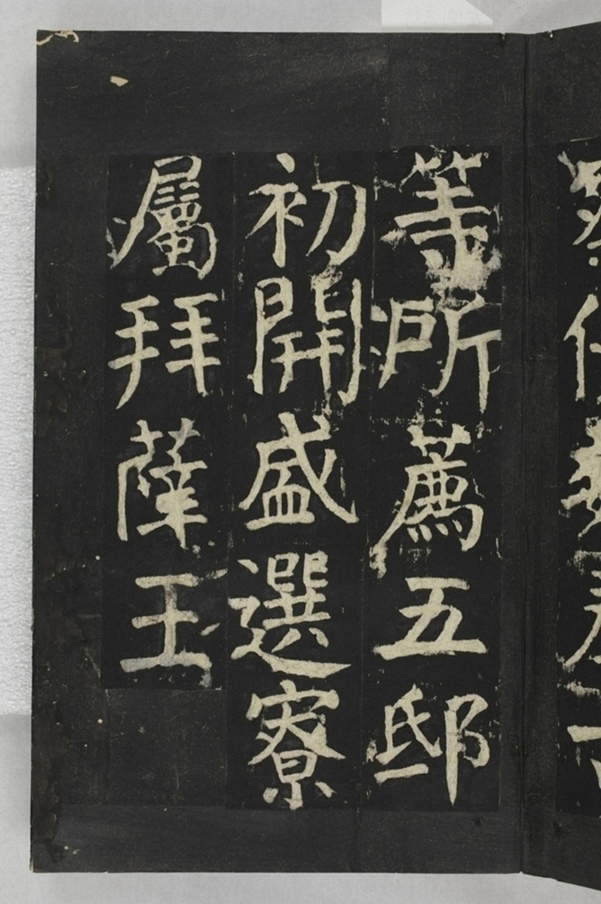 等所薦五邸
初開盛選寮
屬拜薩王